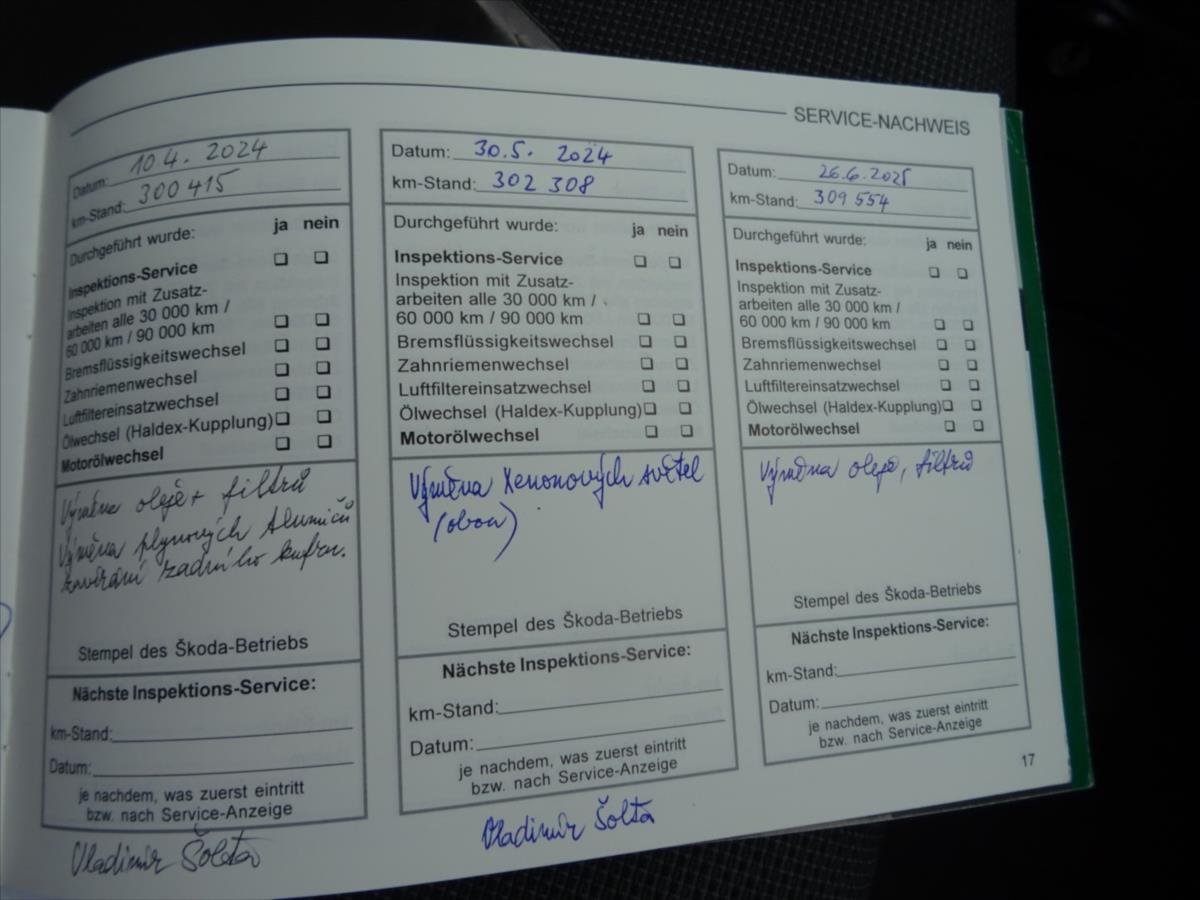 SERVICE-NACHWEIS
Datum: 10 4. 2024
km-Stand: 300 415
Durchgeführt wurde:
ja nein
Inspektions-Service
Inspektion mit Zusatz-
arbeiten alle 30 000 km /
60 000 km / 90 000 km
Bremsflüssigkeitswechsel
Zahnriemenwechsel
Luftfiltereinsatzwechsel
Ölwechsel (Haldex-Kupplung)
Motorölwechsel
Výměna oleje + filtrů
Výměna plynových tlumičů
zavírání zadního kufru.
Stempel des Škoda-Betriebs
Nächste Inspektions-Service:
km-Stand:
Datum:
je nachdem, was zuerst eintritt
bzw. nach Service-Anzeige
Vladimír Šolta
Datum: 30.5. 2024
km-Stand: 302 308
Durchgeführt wurde:
ja nein
Inspektions-Service
Inspektion mit Zusatz-
arbeiten alle 30 000 km /
60 000 km / 90 000 km
Bremsflüssigkeitswechsel
Zahnriemenwechsel
Luftfiltereinsatzwechsel
Ölwechsel (Haldex-Kupplung)
Motorölwechsel
Výměna Xenonových světel
(obou)
Stempel des Škoda-Betriebs
Nächste Inspektions-Service:
km-Stand:
Datum:
je nachdem, was zuerst eintritt
bzw. nach Service-Anzeige
Vladimír Šolta
Datum: 26.6.2025
km-Stand: 309 554
Durchgeführt wurde:
ja nein
Inspektions-Service
Inspektion mit Zusatz-
arbeiten alle 30 000 km /
60 000 km / 90 000 km
Bremsflüssigkeitswechsel
Zahnriemenwechsel
Luftfiltereinsatzwechsel
Ölwechsel (Haldex-Kupplung)
Motorölwechsel
Výměna oleje, filtrů
Stempel des Škoda-Betriebs
Nächste Inspektions-Service:
km-Stand:
Datum:
je nachdem, was zuerst eintritt
bzw. nach Service-Anzeige
17